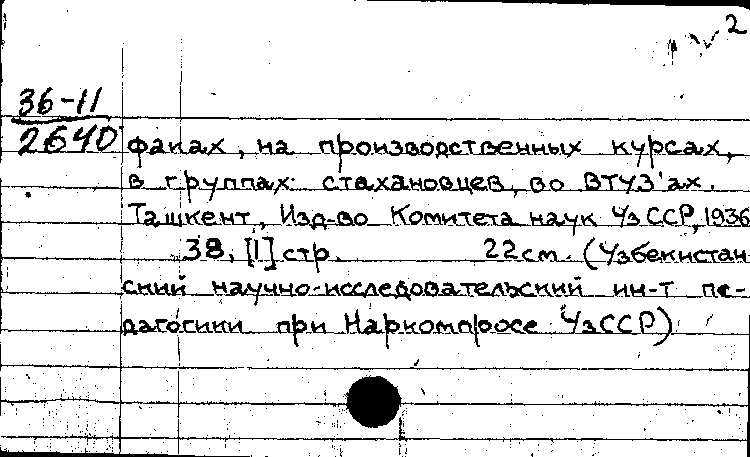 2
36-11
2640
факах, на производственных курсах,
в группах стахановцев, во ВТУЗ'ах.
Ташкент, Изд-во Комитета наук УзССР, 1936
38, [1] стр. 22см. (Узбекистан-
ский научно-исследовательский ин-т пе-
дагогики при Наркомпросе УзССР)